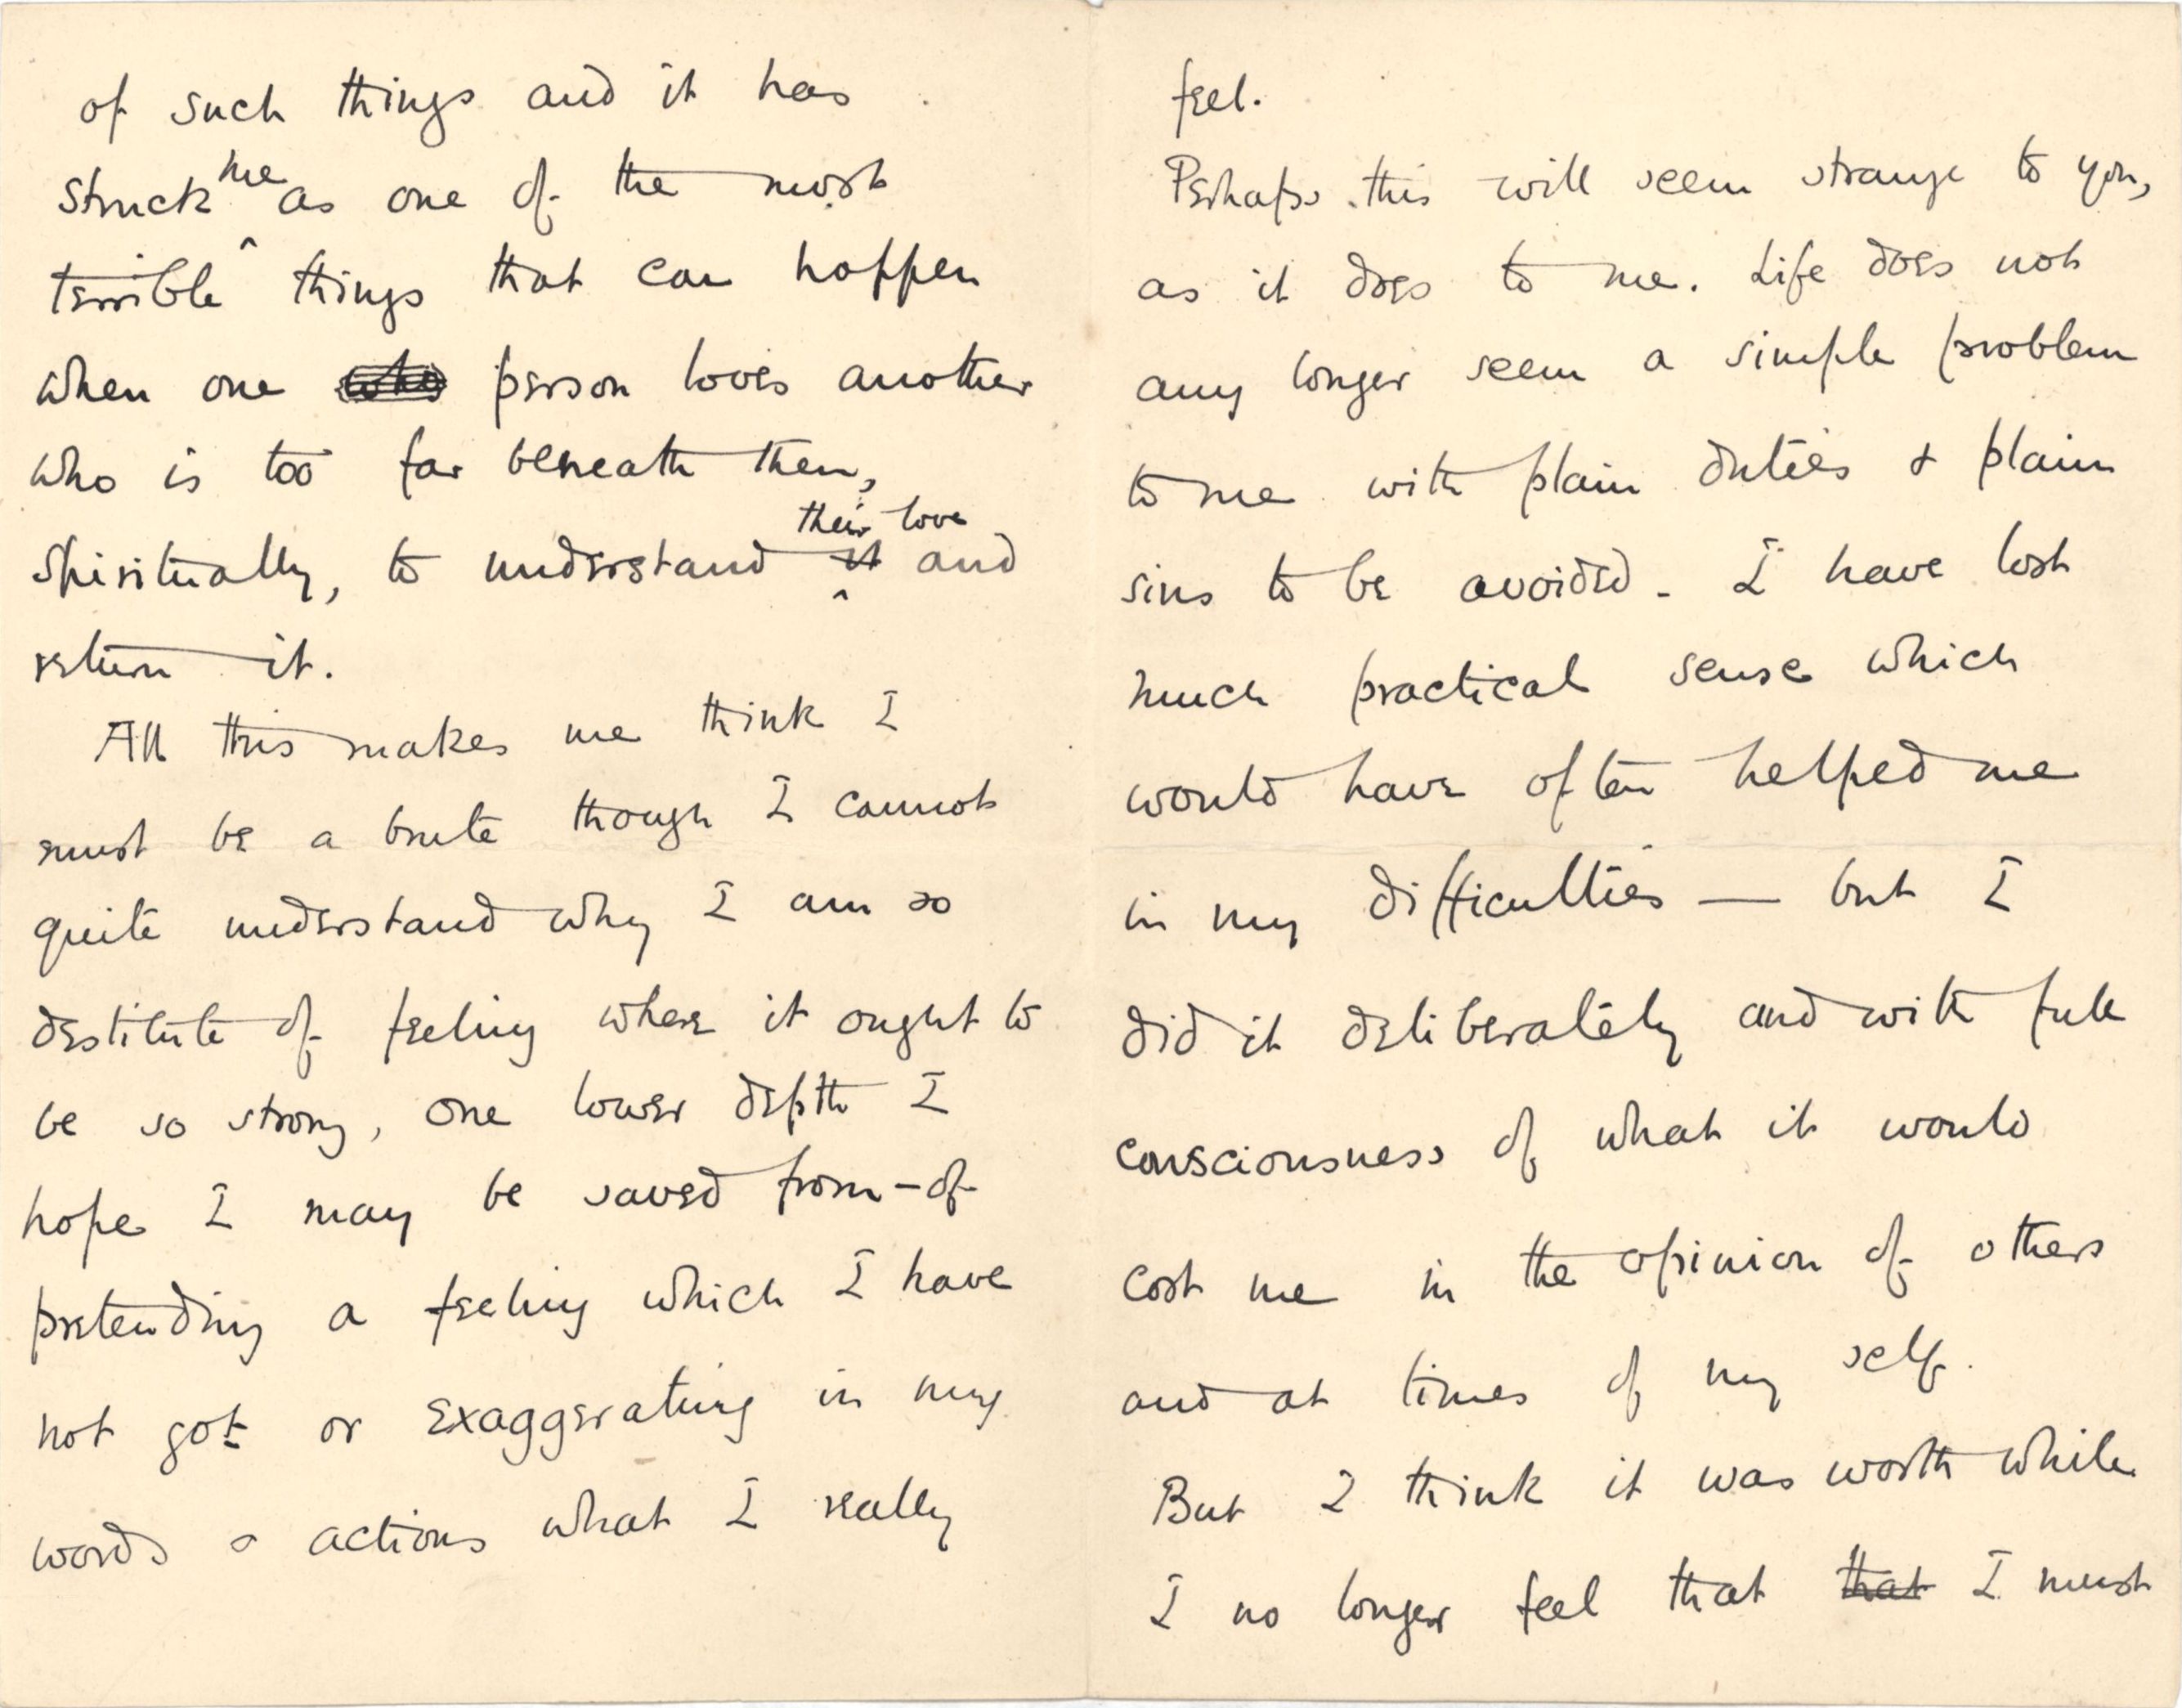 of such things and it has
struck me as one of the most
terrible things that can happen
when one who person loves another
who is too far beneath them,
spiritually, to understand it their love and
return it.
All this makes me think I
must be a brute though I cannot
quite understand why I am so
destitute of feeling where it ought to
be so strong, one lower depth I
hope I may be saved from – of
pretending a feeling which I have
not got or exaggerating in my
words & actions what I really
feel.
Perhaps this will seem strange to you,
as it does to me. Life does not
any longer seem a simple problem
to me with plain duties & plain
sins to be avoided - I have lost
much practical sense which
would have often helped me
in my difficulties — but I
did it deliberately and with full
consciousness of what it would
cost me in the opinion of others
and at times of my self.
But I think it was worth while
I no longer feel that that I must